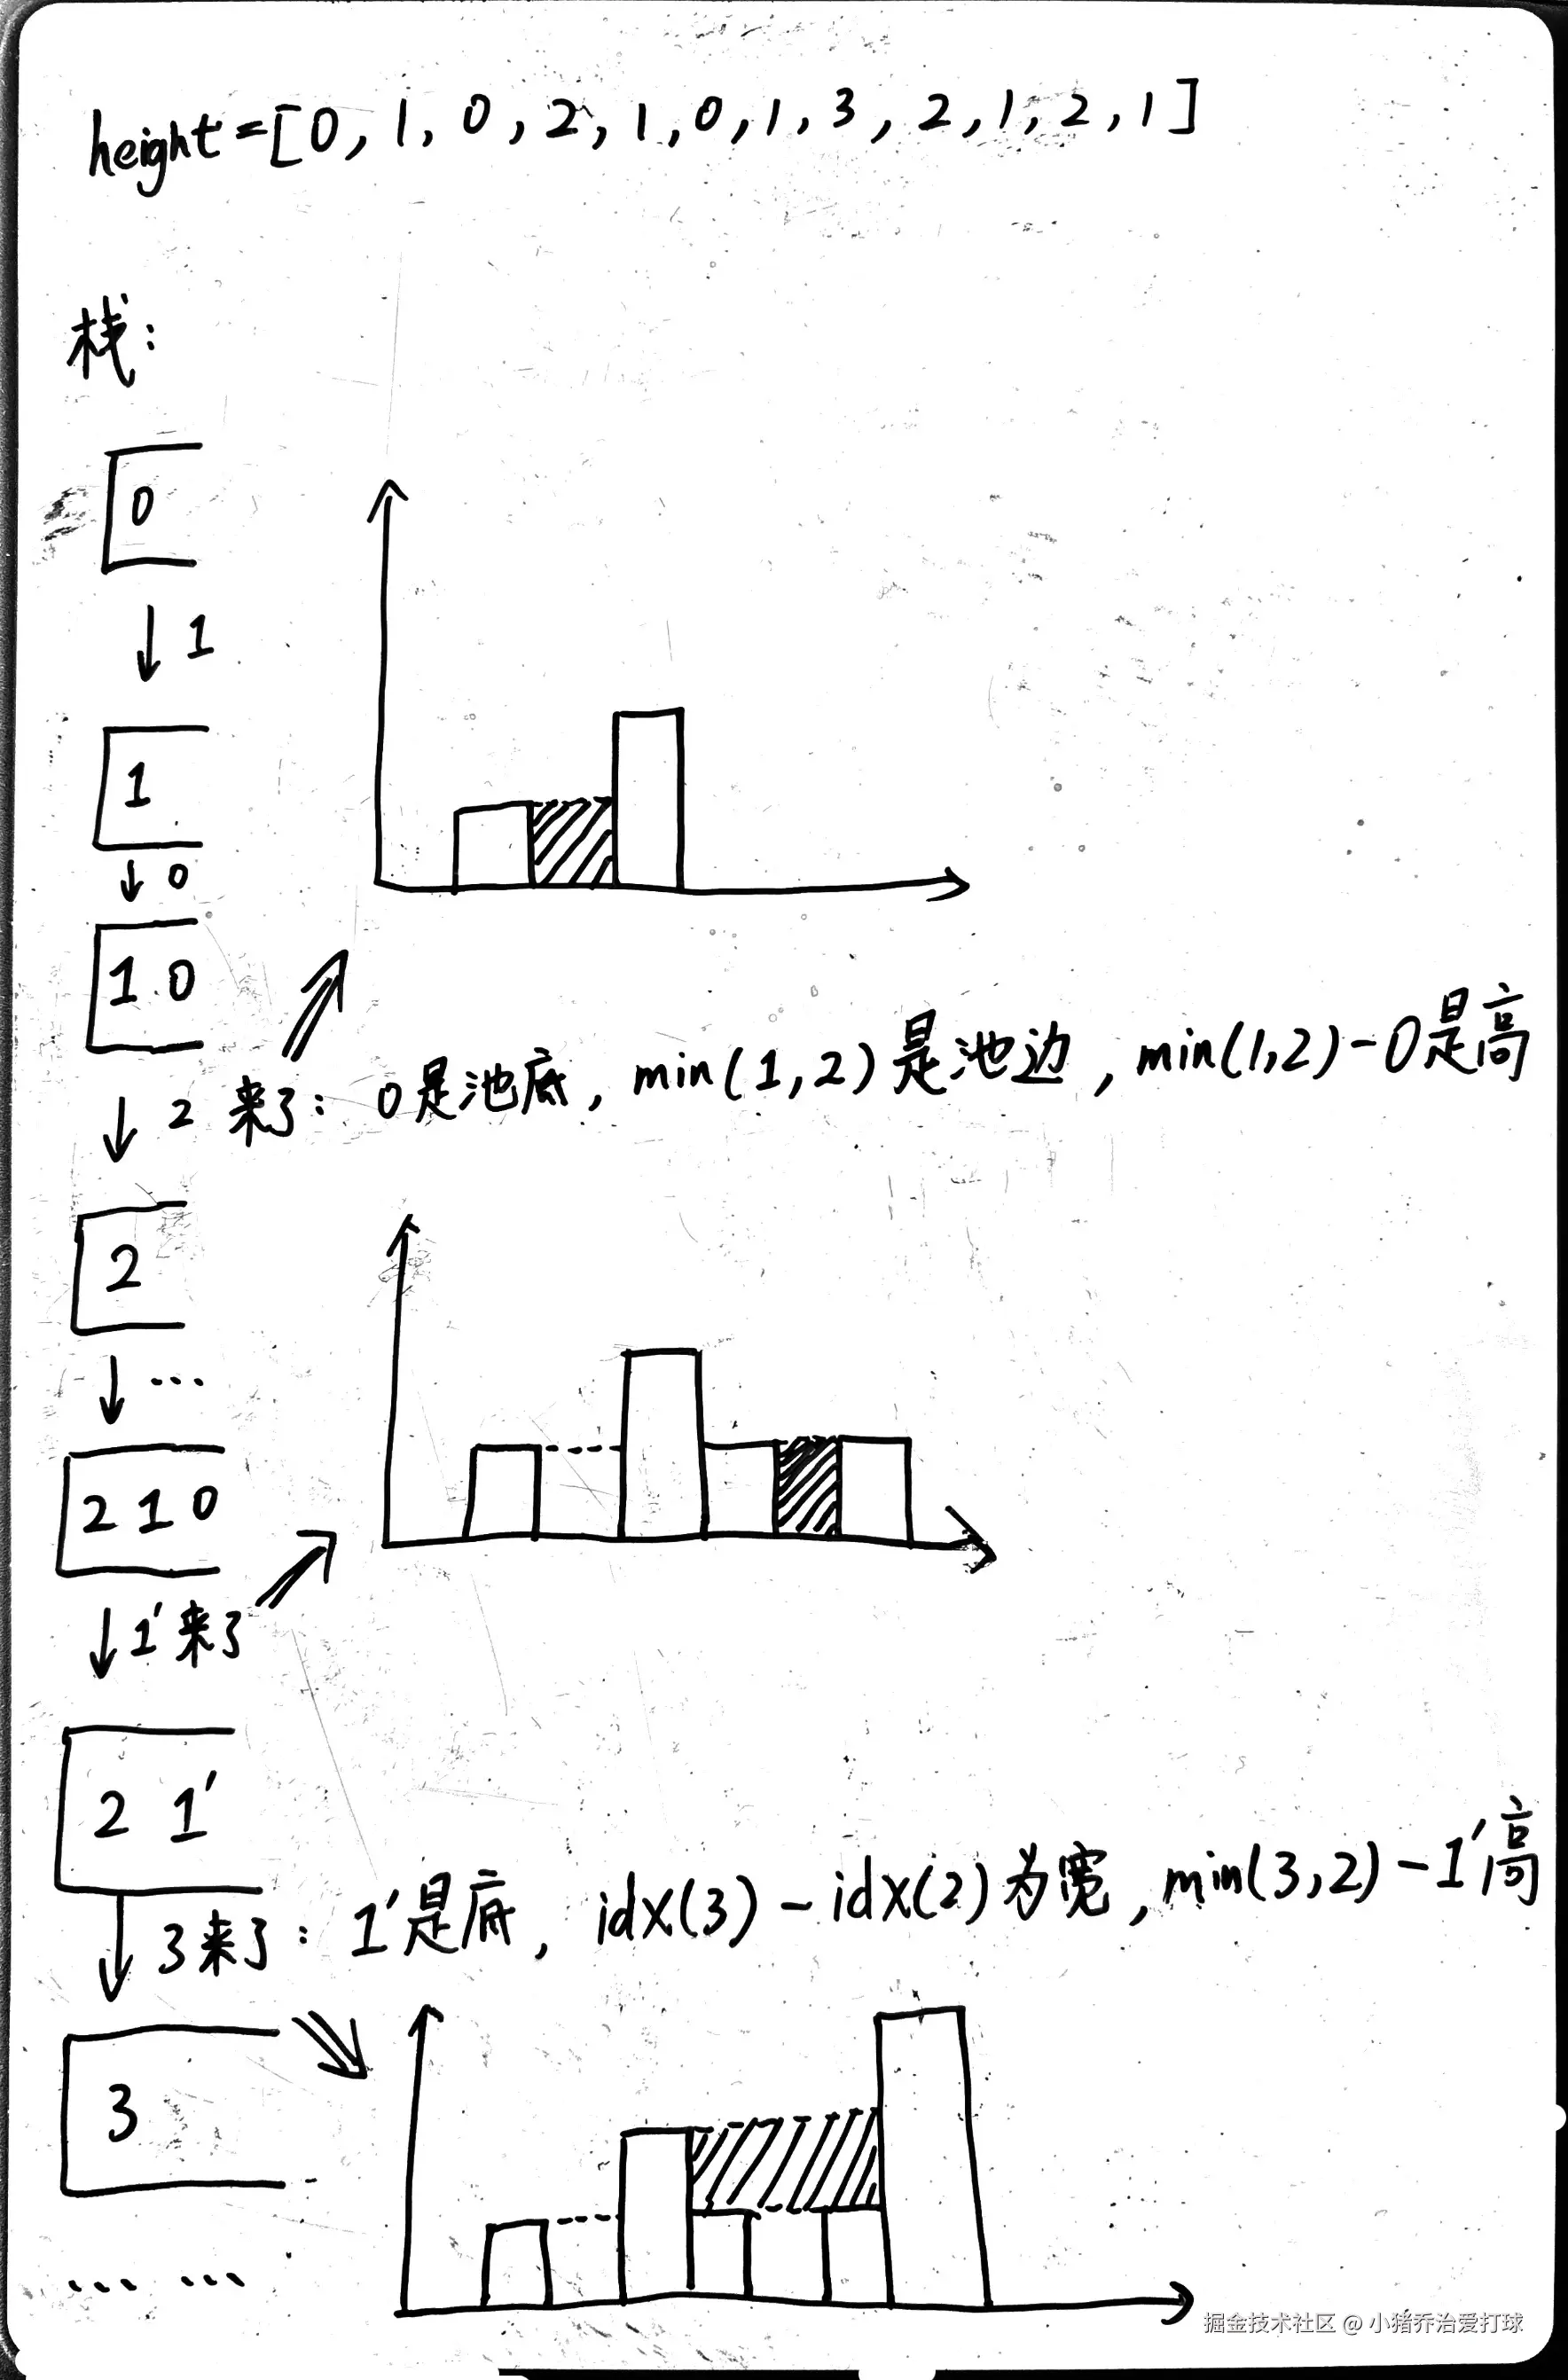 height=[0,1,0,2,1,0,1,3,2,1,2,1]
栈:
0
↓1
1
↓0
1 0
↓2来了: 0是池底, min(1,2)是池边, min(1,2)-0是高
2
↓...
2 1 0
↓1'来了
2 1'
↓3来了: 1'是底, idx(3)-idx(2)为宽, min(3,2)-1'高
3
... ...
掘金技术社区 @ 小猪乔治爱打球